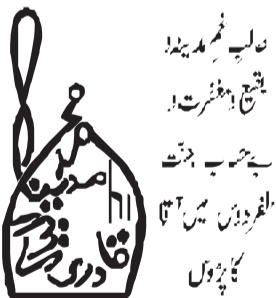 طالبِ غمِ مدینہ و
بقیع و مغفرت و
بے حساب جنت
الفردوس میں آقا
کا پڑوس
محمد
قادری